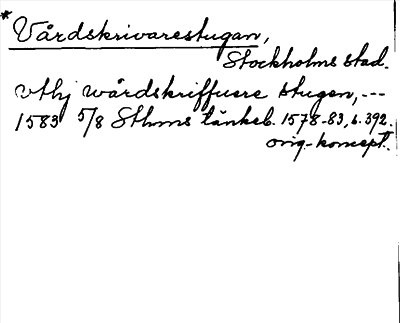 * Vårdskrivarestugan,
Stockholms stad.
vthj wårdskriffuere stugen, ---
1583 5/8 Sthms tänkeb. 1578-83, s. 392.
orig.-koncept.